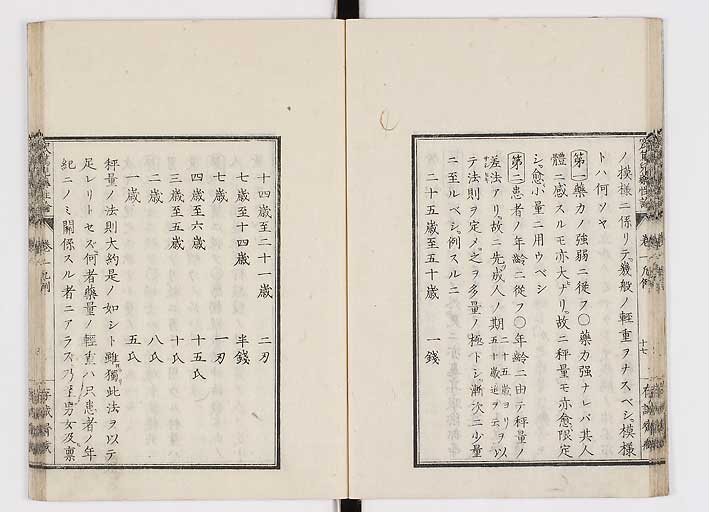 ノ模様ニ係リテ幾般ノ輕重ヲナスベシ模様
トハ何ソヤ
第一藥力ノ強弱ニ從フ〇藥力強ナレバ其人
體ニ感スルモ亦大ナリ故ニ秤量モ亦愈限定
シ愈小量ニ用ウベシ
第二患者ノ年齡ニ從フ〇年齡ニ由テ秤量ノ
差法アリ故ニ先成人ノ期二十五歳ヨリ五十歳迄ヲ云フヲ以
テ法則ヲ定メ之ヲ多量ノ極トシ漸次ニ少量
ニ至ルベシ例スルニ
二十五歳至五十歳 一錢
十七
十四歳至二十一歳 二刃
七歳至十四歳 半錢
七歳 一刃
四歳至六歳 十五氏
三歳至五歳 十氏
二歳 八氏
一歳 五氏
秤量ノ法則大約是ノ如シト雖獨此法ヲ以テ
足レリトセズ何者藥量ノ輕重ハ只患者ノ年
紀ニノミ關係スル者ニアラス乃至男女及稟
卷一 凡例